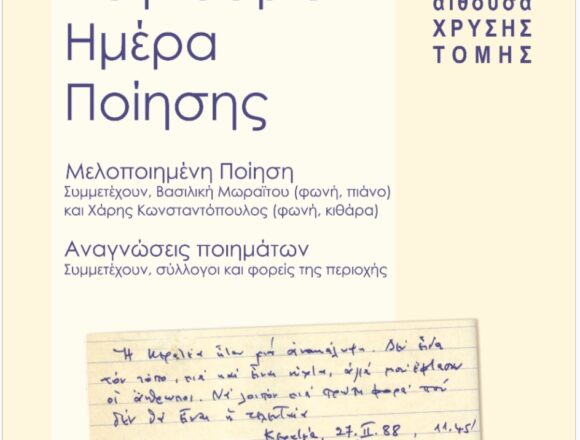 Ημέρα
Ποίησης
αίθουσα
ΧΡΥΣΗΣ
ΤΟΜΗΣ
Μελοποιημένη Ποίηση
Συμμετέχουν, Βασιλική Μωραΐτου (φωνή, πιάνο)
και Χάρης Κωνσταντόπουλος (φωνή, κιθάρα)
Αναγνώσεις ποιημάτων
Συμμετέχουν, σύλλογοι και φορείς της περιοχής
Ἡ Κερατέα ἦταν μιά ἀνακάλυψη. Δέν εἶδα
τόν τόπο, γιατί εἶναι νύχτα, ἀλλά μοῦ ἔφτασαν
οἱ ἄνθρωποι. Νά λοιπόν μιά πρώτη φορά πού
δέν θά εἶναι ἡ τελευταία
Κερατέα, 27.II.88, 11.45'